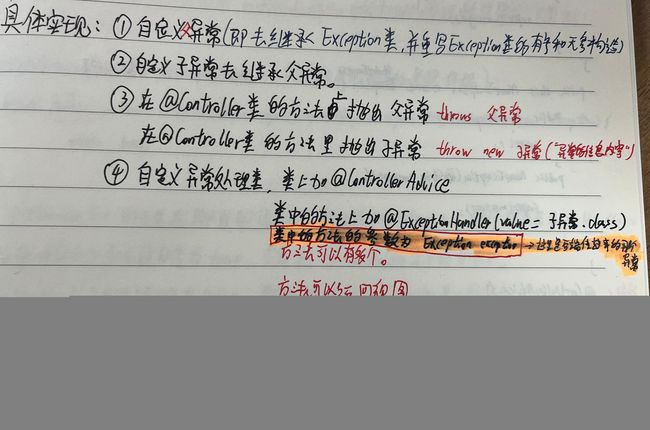 具体实现：① 自定义父异常(即去继承Exception类,并重写Exception类的有参和无参构造)
② 自定义子异常去继承父异常。
③ 在@Controller类的方法上抛出父异常 throws 父异常
在@Controller类的方法里抛出子异常 throw new 子异常("异常的信息内容")
④ 自定义异常处理类，类上加@ControllerAdvice
类中的方法上加@ExceptionHandler(value=子异常.class)
类中的方法的参数为 Exception exception →
异常
方法可以有多个。
方法可以返回视图